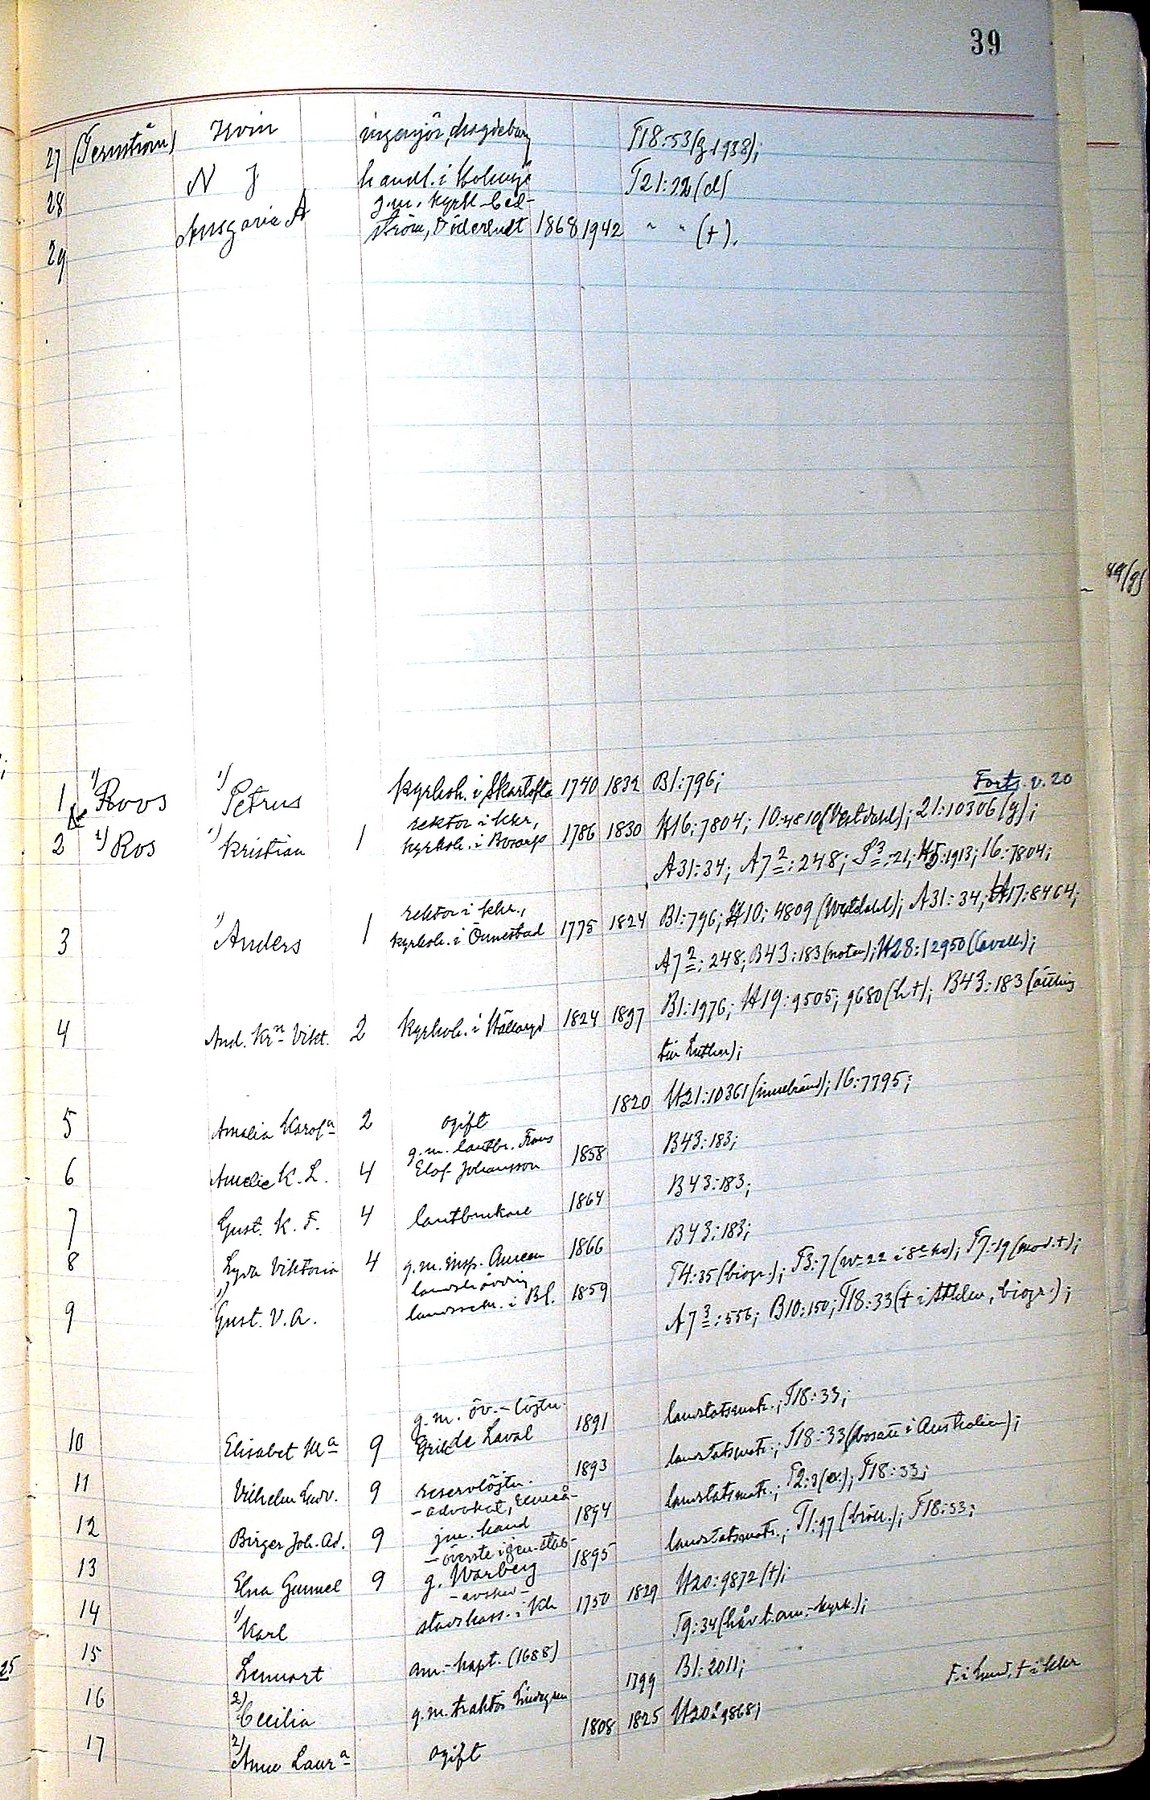 39
27 (Fernström) Irvin ingenjör, T18:53 (g. 1938);
28 N J handl. i Holmsjö T21:92 (d)
g.m. kyrkh. Ced-
29 Ansgaria A ström, Söderåkra 1868 1942 " " (+).
49/g)
1 1) Roos 1) Petrus kyrkoh. i Skartofta 1740 1832 B1:796; Forts. v. 20
rektor i kkr,
2 1) Ros 1) Kristian 1 kyrkoh. i Bosarp 1786 1830 H16:7804; 10:4810 (Westdahl); 21:10306 (g);
A31:34; A7 2:248; S3:21; H5:1913; 16:7804;
rektor i kkr,
3 1) Anders 1 kyrkoh. i Onnestad 1775 1824 B1:796; H10:4809 (Westdahl); A31:34; H17:8464;
A7 2:248; B43:183 (noten); H28:12950 (Cavall.);
4 And. Kr:n Vikt. 2 kyrkoh. i Hällaryd 1824 1897 B1:1976; H19:9505; 9680 (h+); B43:183 (ättling
från Luther);
5 Amalia Karol:a 2 ogift 1820 H21:10361 (innebränd); 16:7795;
g.m. lantbr. Frans
6 Amelie K. L. 4 Elof Johansson 1858 B43:183;
7 Gust. K. F. 4 lantbrukare 1864 B43:183;
8 Lydia Viktoria 4 g.m. insp. Aurean 1866 B43:183;
landshövding
9 1) Gust. V. A. landssekr. i Bl. 1859 T4:35 (biogr.); T3:7 (n:o 22 i 8:e kl.); T7:19 (mod. +);
A7 3:556; B10:150; T18:33 (+ i Sthlm, biogr.);
g.m. öv.-löjtn.
10 Elisabet M:a 9 Erik de Laval 1891 landstatsmatr.; T18:33;
11 Vilhelm Ludv. 9 reservlöjtn. 1893 landstatsmatr.; T18:33 (bosatt i Australien);
- advokat, Umeå -
12 Birger Joh. Ad. 9 jur. kand 1894 landstatsmatr.; T2:3 (ex.); T18:33;
- överste i gen. stab -
13 Elna Gunnel 9 g. Warberg 1895 landstatsmatr.; T1:97 (bröll.); T18:33;
14 1) Karl stadskass. i Kh 1750 1829 H20:9872 (+);
15 Lennart am.-kapt. (1688) T9:34 (håvt. am.-kyrk.);
16 2) Cecilia g.m. traktör Lindgren 1799 B1:2011;
17 2) Anna Laur:a ogift 1808 1825 H20:9868; F. i Lund, + i kkr
25